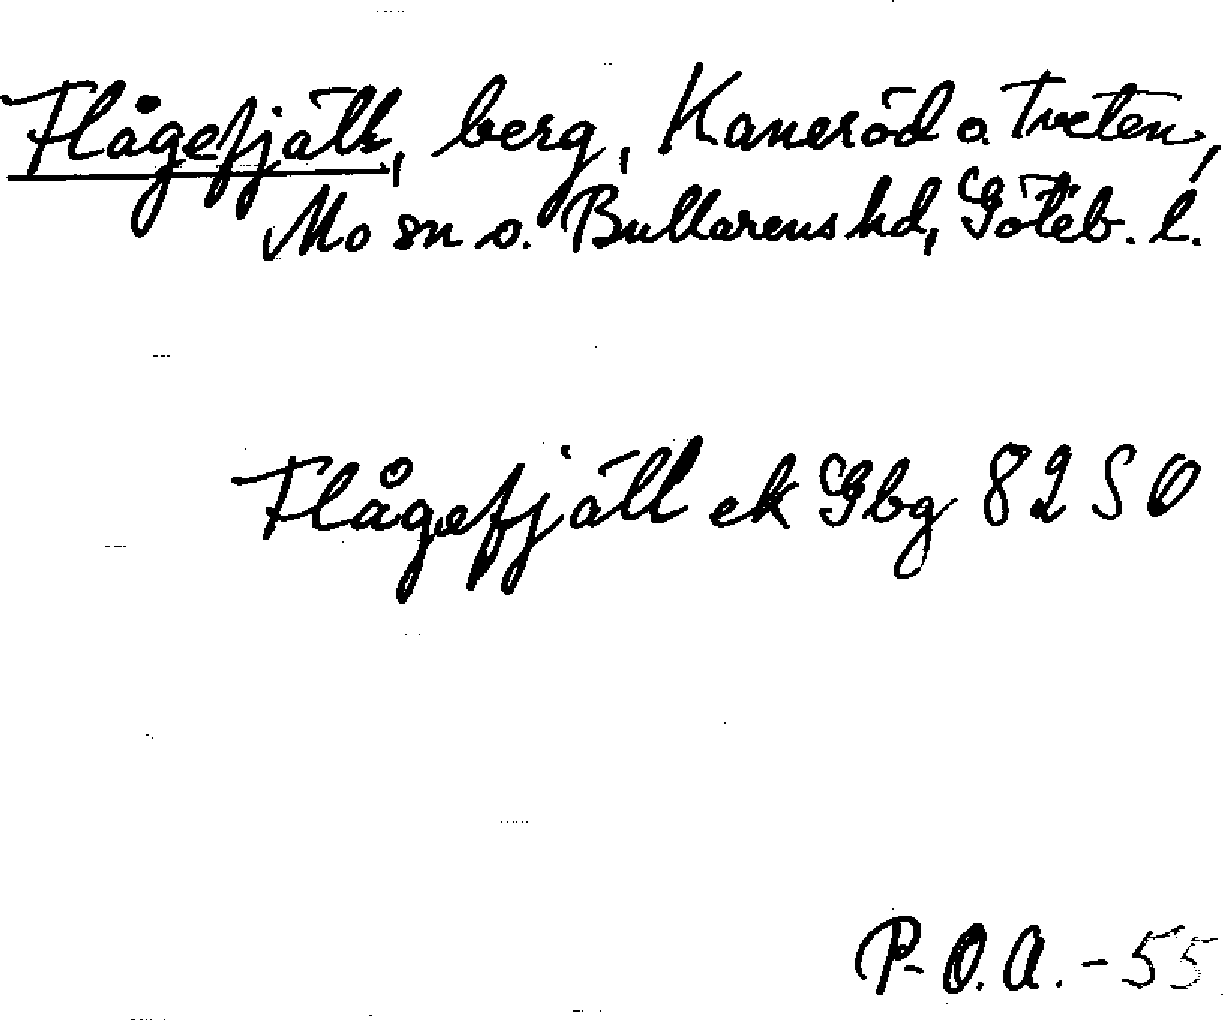 Flågefjäll, berg, Kaneröd o. Tveten,
Mo sn o. Bullarens hd, Göteb. l.
Flågefjäll ek Gbg 8250
P-O.A. -55